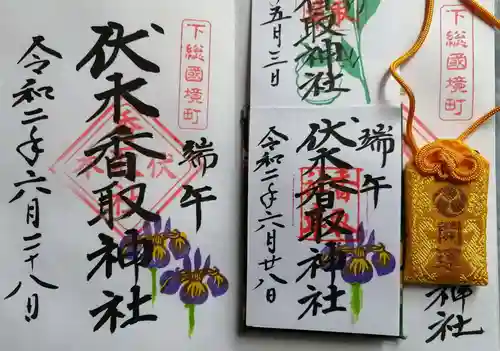 下総國境町
端午
伏木香取神社
令和二年六月二十八日
取神社
五月三日
端午
伏木香取神社
令和二年六月廿八日
下総國境町
開運
神社